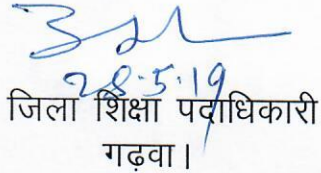 28.5.19
जिला शिक्षा पदाधिकारी
गढ़वा।